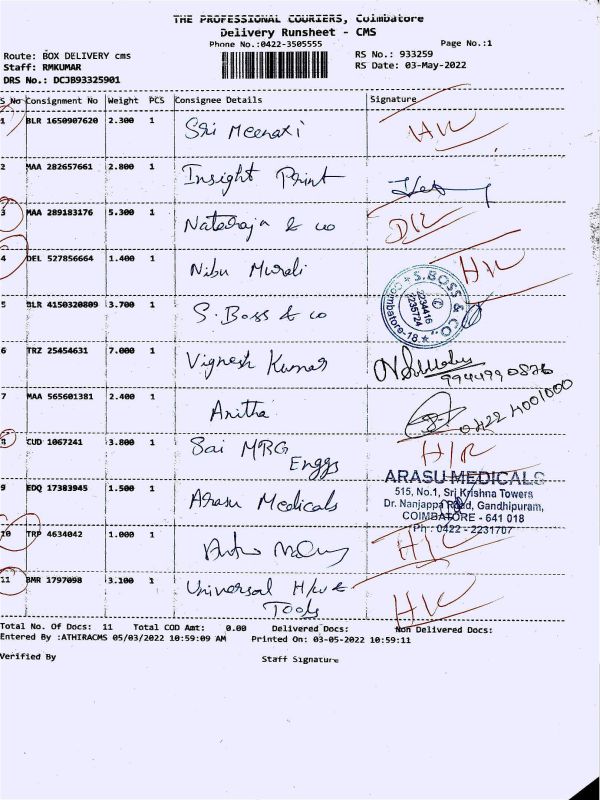 THE PROFESSIONAL COURIERS, Coimbatore
Delivery Runsheet - CMS
Phone No.:0422-3505555 Page No.:1
Route: BOX DELIVERY cms RS No.: 933259
Staff: RMKUMAR RS Date: 03-May-2022
DRS No.: DCJB93325901
S No Consignment No Weight PCS Consignee Details Signature
1 BLR 1650907620 2.300 1 Sri Meenaxi
2 MAA 282657661 2.800 1 Insight Print
3 MAA 289183176 5.300 1 Nataraja & co
4 DEL 527856664 1.400 1 Nibu Murali
S.BOSS & CO.
2234416
2235724
Coimbatore-18
5 BLR 4150320809 3.700 1 S. Boss & co
6 TRZ 25454631 7.000 1 Vignesh Kumar
9944990876
7 MAA 565601381 2.400 1 Anitha
0422 4001000
8 CUD 1067241 3.800 1 Sai MRG
Enggs
ARASU MEDICALS
515, No.1, Sri Krishna Towers
9 EDQ 17383945 1.500 1 Arasu Medicals Dr. Nanjappa Road, Gandhipuram,
COIMBATORE - 641 018
Ph : 0422 - 2231707
10 TRP 4634042 1.000 1
11 BMR 1797098 3.100 1 Universal H/w &
Tools
Total No. Of Docs: 11 Total COD Amt: 0.00 Delivered Docs: Non Delivered Docs:
Entered By :ATHIRACMS 05/03/2022 10:59:09 AM Printed On: 03-05-2022 10:59:11
Verified By Staff Signature